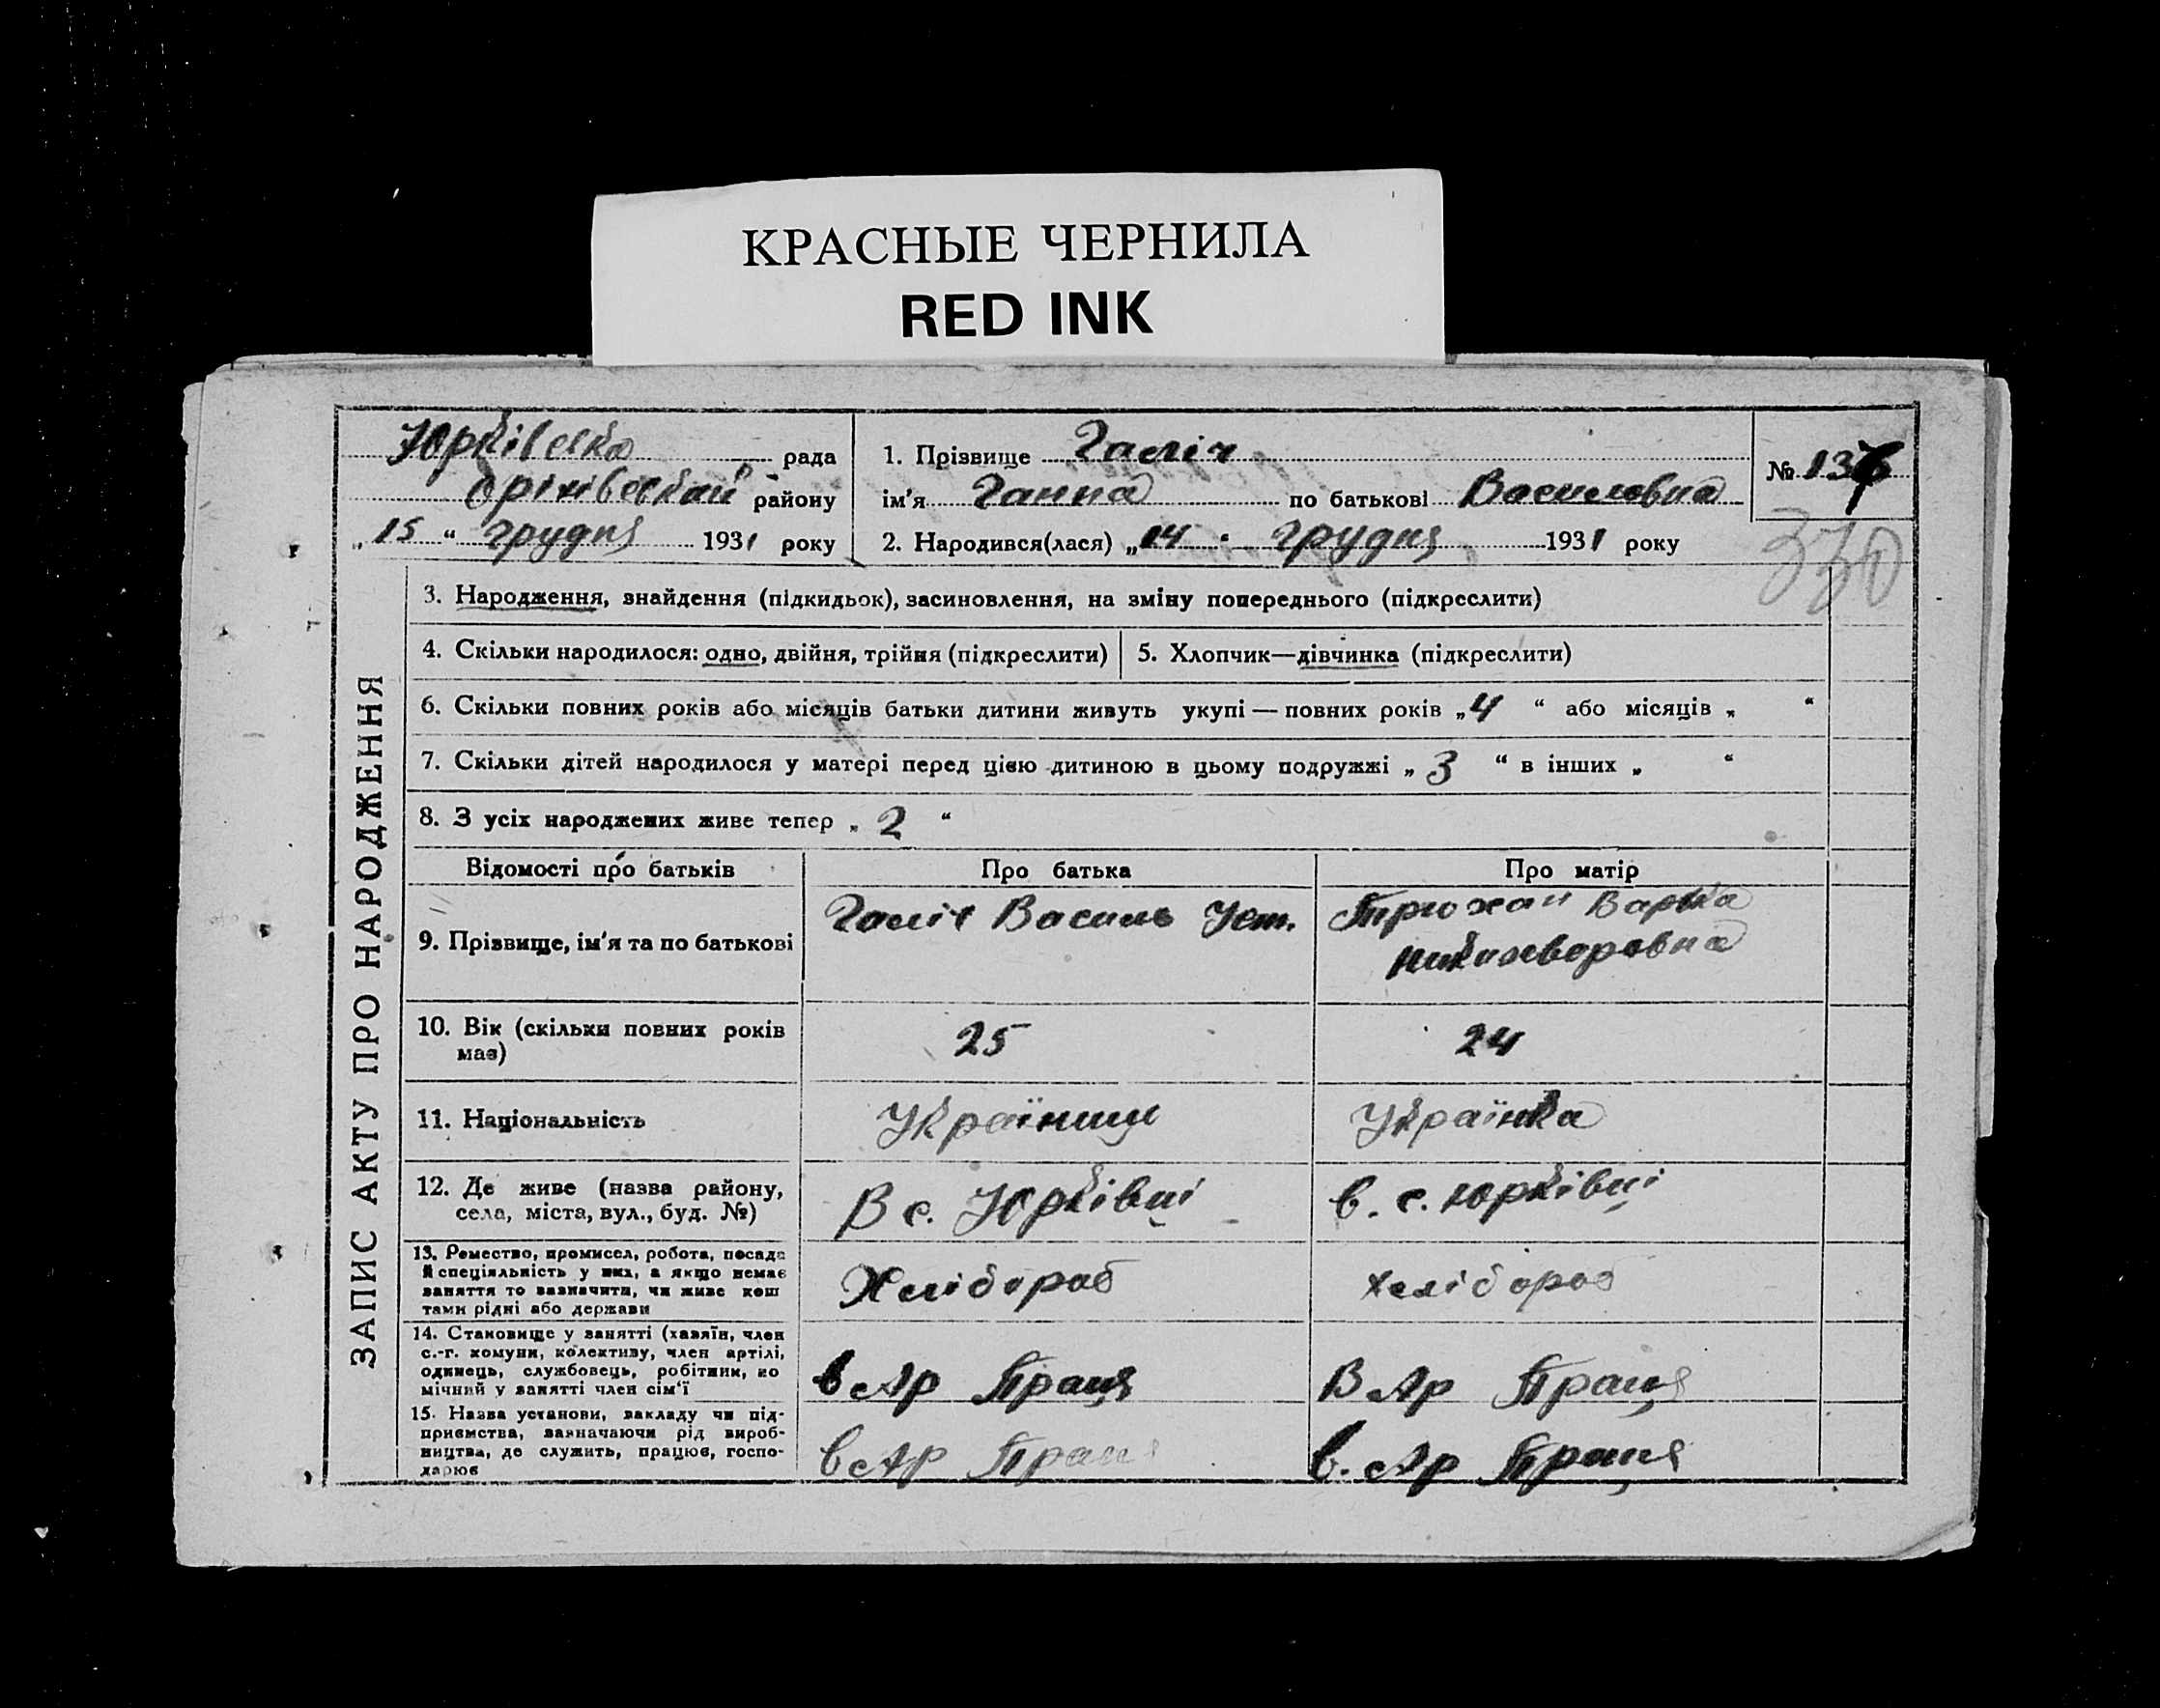 КРАСНЫЕ ЧЕРНИЛА
RED INK
Юрківська рада
Орінівский району
„15“ грудня 1931 року
1. Прізвище Галіч
ім'я Ганна по батькові Василовна
2. Народився(лася) „14 “ грудня 1931 року
№ 137
330
ЗАПИС АКТУ ПРО НАРОДЖЕННЯ
3. Народження, знайдення (підкидьок), засиновлення, на зміну попереднього (підкреслити)
4. Скільки народилося: одно, двійня, трійня (підкреслити) 5. Хлопчик—дівчинка (підкреслити)
6. Скільки повних років або місяців батьки дитини живуть укупі — повних років „4 “ або місяців „ “
7. Скільки дітей народилося у матері перед цією дитиною в цьому подружжі „ 3 “ в інших „ “
8. З усіх народжених живе тепер „ 2 “
Відомості про батьків Про батька Про матір
9. Прізвище, ім'я та по батькові Галіч Василь Уст. Трюхан Варка
10. Вік (скільки повних років має) 25 24
11. Національність Українищ Українка
12. Де живе (назва району, села, міста, вул., буд. №) В с. Юрківці в. с. Юрківці
13. Ремество, промисел, робота, посада
й спеціяльність у них, а якщо немає
заняття то зазначити, чи живе кош
тами рідні або держави
Хлібороб хлібороб
14. Становище у занятті (хазяїн, член
с.-г. комуни, колективу, член артілі,
одинець, службовець, робітник, по
мічний у занятті член сім'ї
в Ар Праця В Ар Праця
15. Назва установи, закладу чи під-
приємства, зазначаючи рід вироб-
ництва, де служить, працює, госпо-
дарює
в Ар Праця в. Ар Праця